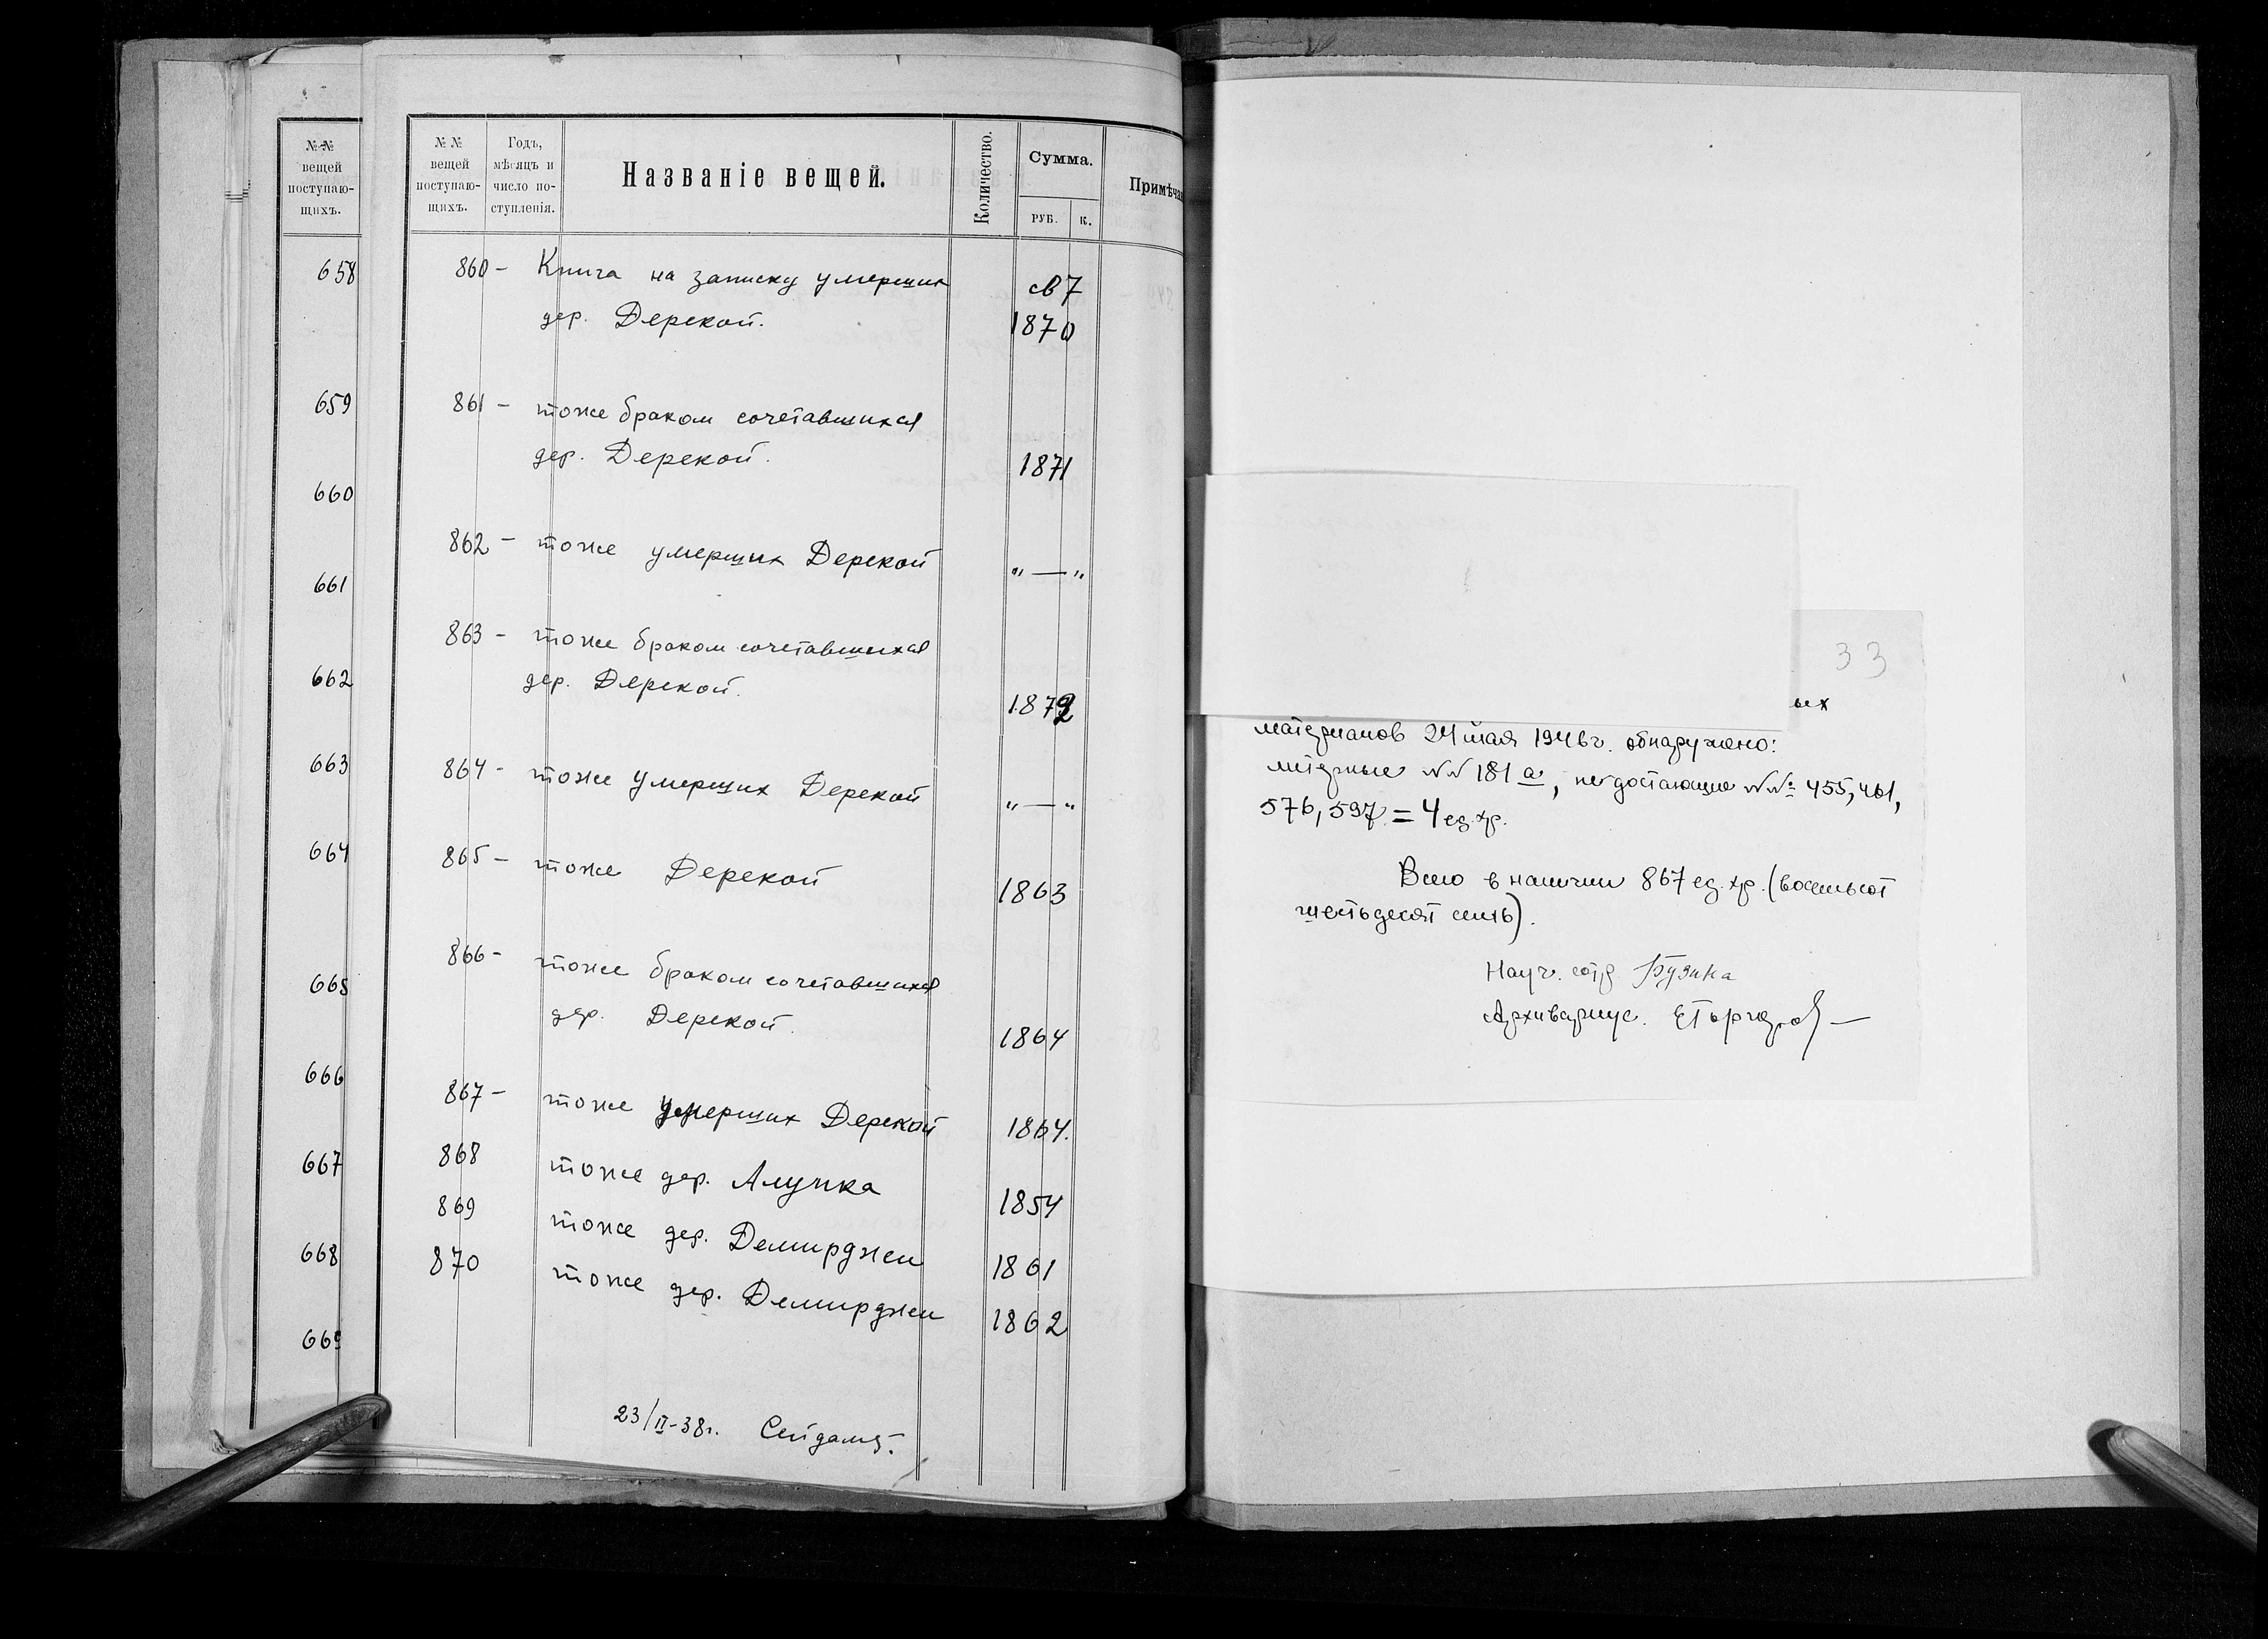 №№ вещей поступаю-щихъ.
658
659
660
661
662
663
664
665
666
667
668
669
№ №
вещей
поступаю-
щихъ.
Годъ,
мѣсяцъ и
число по-
ступленія.
Названіе вещей.
Количество.
Сумма.
РУБ. К.
Примѣча
860 - Книга на записку умерших св 7
дер. Дерекой. 1870
861 - тоже браком сочетавшихся
дер. Дерекой. 1871
862 - тоже умерших Дерекой " — "
863 - тоже браком сочетавшихся
дер. Дерекой. 1872
864 - тоже умерших Дерекой " — "
865 - тоже Дерекой 1863
866 - тоже браком сочетавшихся
дер. Дерекой. 1864
867 - тоже умерших Дерекой 1864.
868 тоже дер. Алупка 1854
869 тоже дер. Демирджи 1861
870 тоже дер. Демирджи 1862
23/II-38г.
33
ых
материалов 24 мая 1946 г. обнаружено:
литерные №№ 181 а, недостающие №№ 455, 461,
576, 597. = 4 ед. хр.
Всего в наличии 867 ед. хр. (восемьсот
шестьдесят семь).
Науч. сотр Бузина
Архивариус.